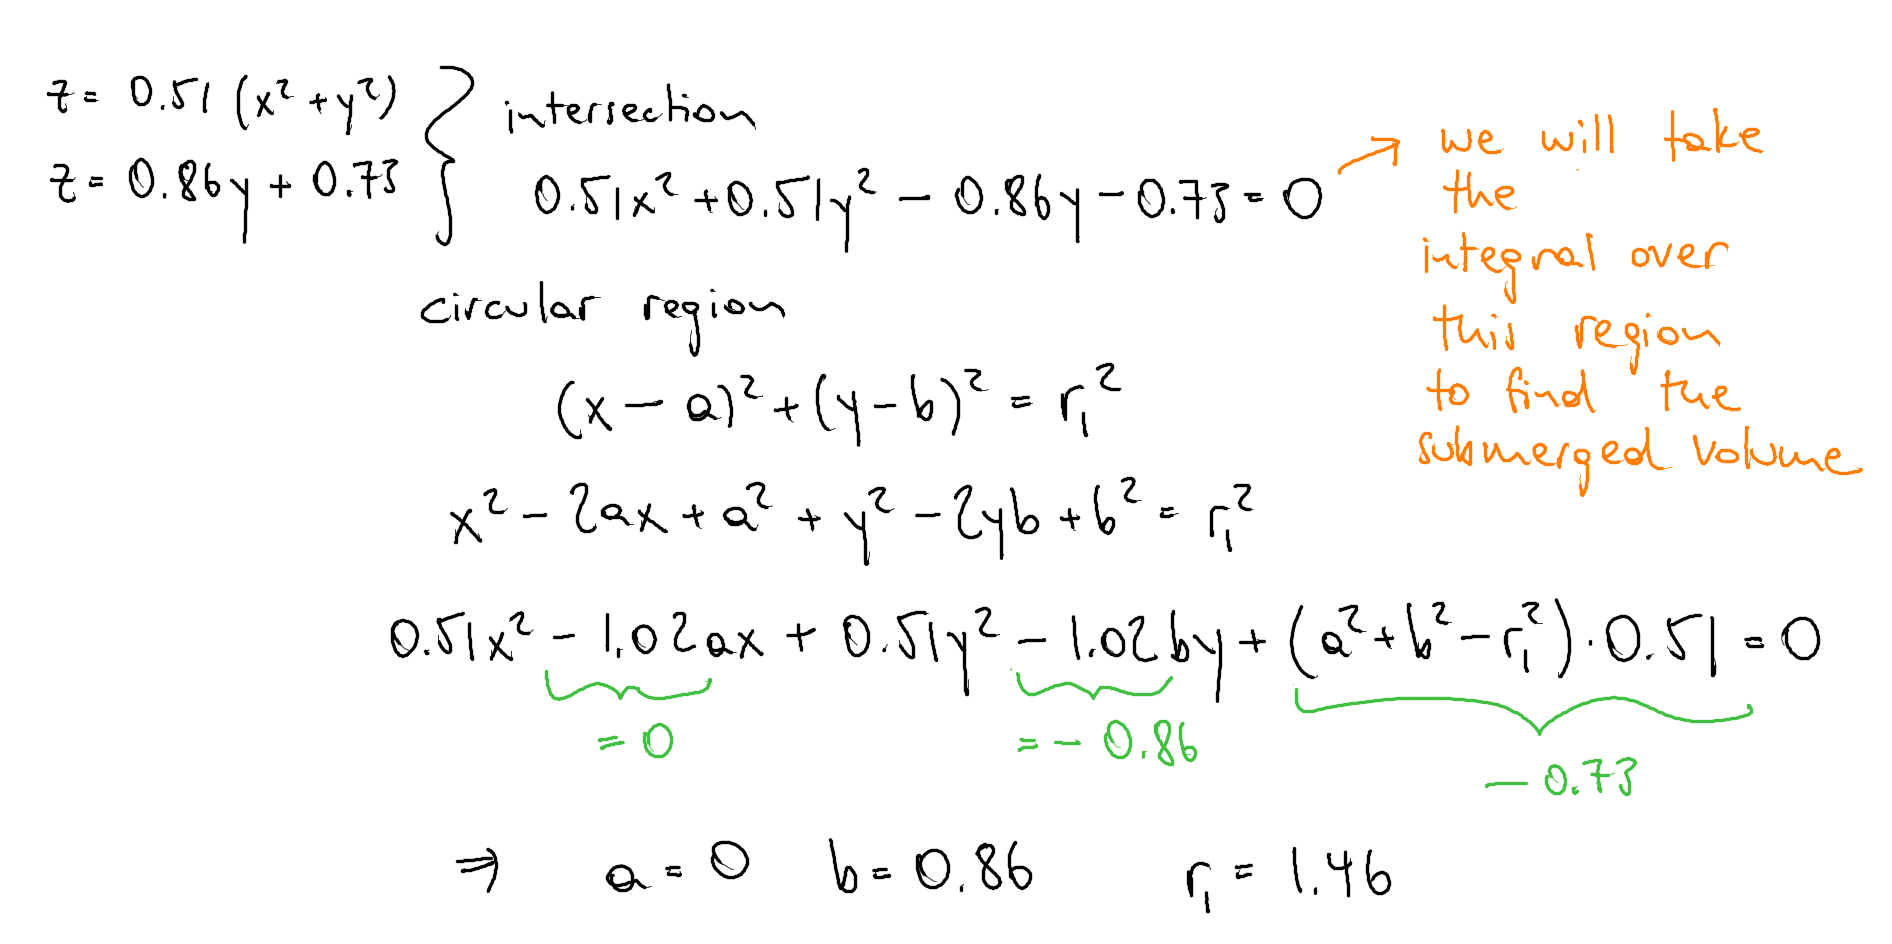 z = 0.51 (x² + y²)
z = 0.86y + 0.73
intersection
0.51x² + 0.51y² - 0.86y - 0.73 = 0
→ we will take
the
integral over
this region
to find the
submerged volume
circular region
(x - a)² + (y - b)² = r₁²
x² - 2ax + a² + y² - 2yb + b² = r₁²
0.51x² - 1.02ax + 0.51y² - 1.02by + (a² + b² - r₁²) · 0.51 = 0
= 0
= - 0.86
- 0.73
⇒ a = 0 b = 0.86 r₁ = 1.46